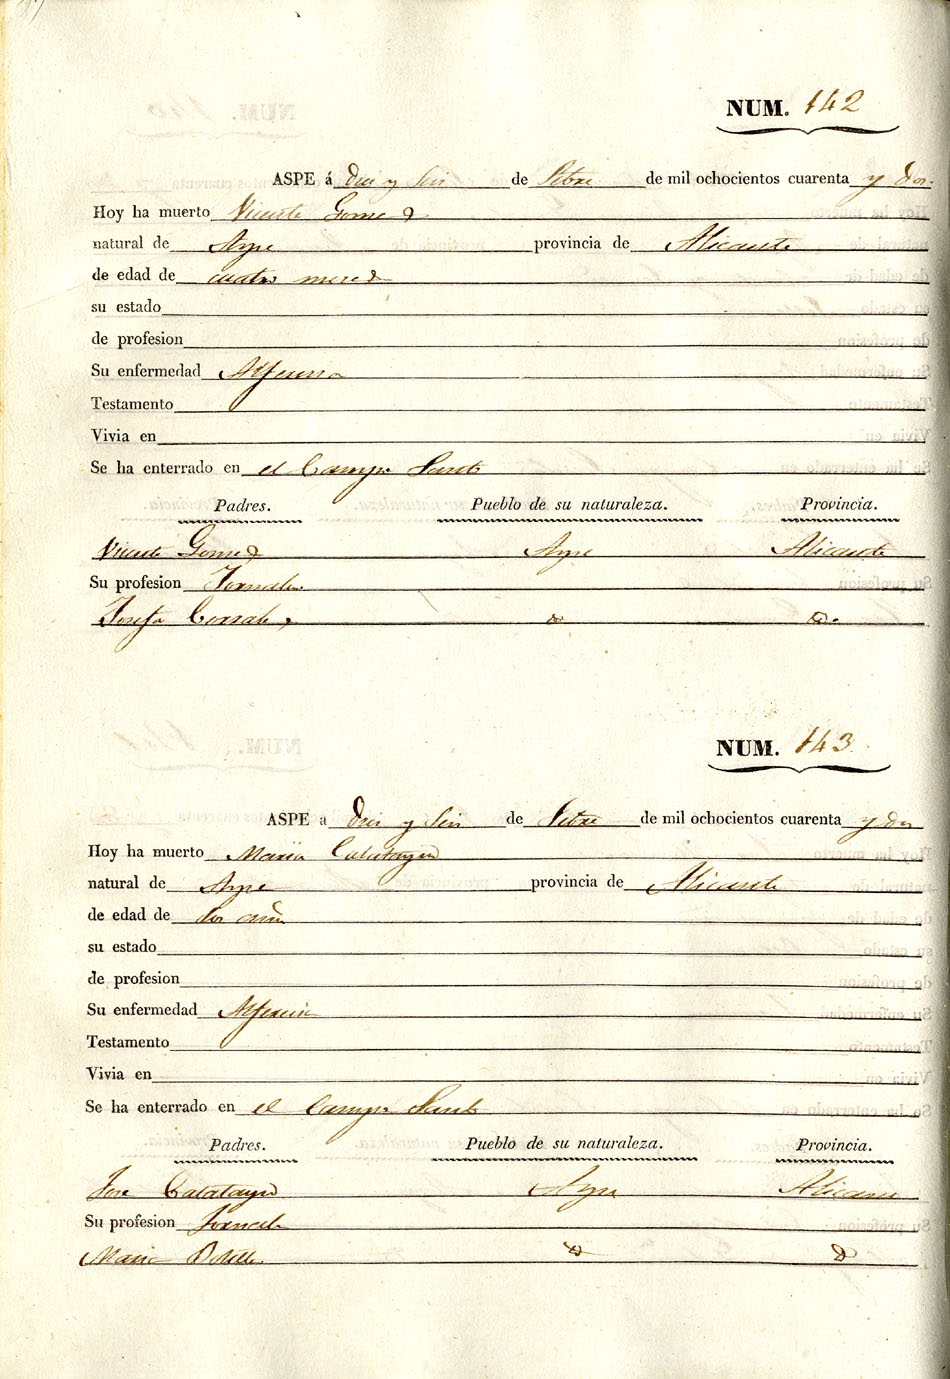 NUM. 142
ASPE á Dies y Seis de Setbre de mil ochocientos cuarenta y dos.
Hoy ha muerto Vicente Gomez
natural de Aspe provincia de Alicante
de edad de cuatro meses
su estado
de profesion
Su enfermedad Alferesia
Testamento
Vivia en
Se ha enterrado en el Campo Santo
Padres. Pueblo de su naturaleza. Provincia.
Vicente Gomez Aspe Alicante
Su profesion Jornalero
Josefa Corrales
NUM. 143
ASPE a Dies y Seis de Setbre de mil ochocientos cuarenta y dos
Hoy ha muerto Maria Calatayud
natural de Aspe provincia de Alicante
de edad de dos años
su estado
de profesion
Su enfermedad Alferesia
Testamento
Vivia en
Se ha enterrado en el Campo Santo
Padres. Pueblo de su naturaleza. Provincia.
Jose Calatayud Aspe Alicante
Su profesion Jornalero
Maria Botella